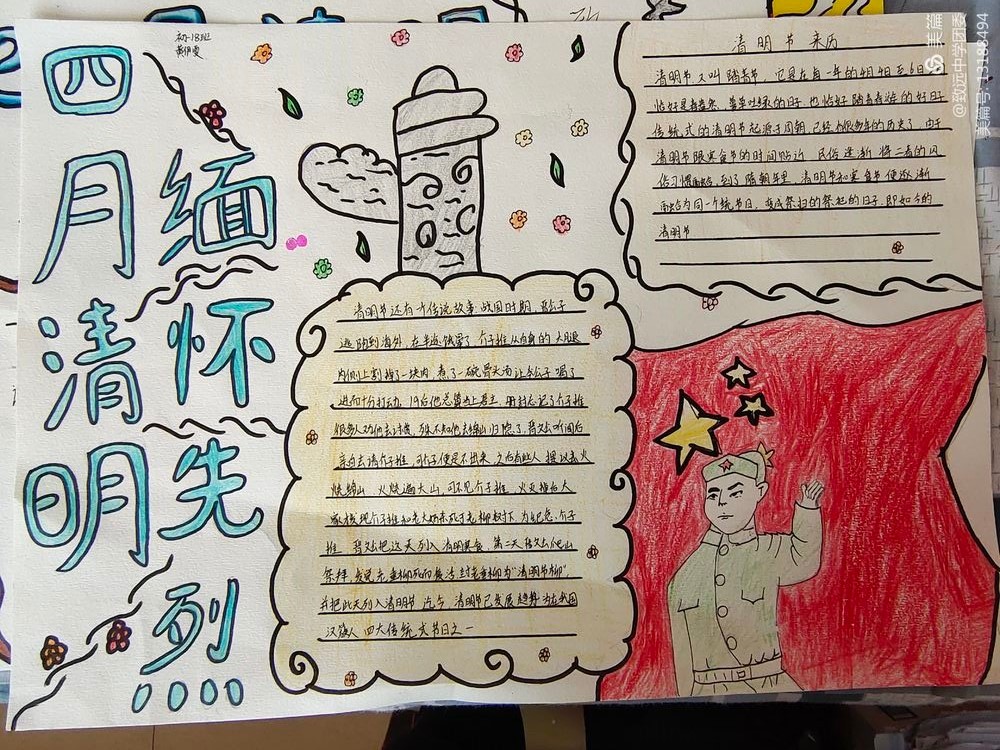 四月清明
缅怀先烈
初一18班
清明节 来历
清明节又叫踏青节，它是在每一年的4月4日至6日
恰好是春暖 草草吐绿的日子 也恰好踏青春游的好日子
传统式的清明节起源于周朝，已经有很多年的历史了，由于
清明节跟寒食节的时间贴近 民俗逐渐将二者的风
俗习惯融合，到了隋朝年里，清明节和寒食节便逐渐
融合为同一个统节日，变成祭扫的祭祀的日子，即如今的
清明节
清明节还有个传说故事：战国时期，晋公子
逃防到海外，在半途饿晕了，介子推从自身的大腿
内侧上割掉了一块肉 煮了一碗骨头汤让公子喝了
进而十分打动，19后他总算当上君主，册封忘记了介子推
很多人劝他去讨赏，殊不知他去绵山归隐了，晋文公听闻后
亲自去请介子推，可介子便是不出来，之后有些人提议去火
烧绵山，火烧遍大山，可不见介子推，火灭后大
家发现介子推和老大娘亲死于老柳树下 为纪念介子
推 晋文公把这天列入清明寒食，第二天晋文公爬山
祭拜，发觉老垂柳死而复活 封老垂柳为“清明节柳”，
并把此天列入清明节 迄今，清明节已发展趋势为在我国
汉族人四大传统式节日之一
美篇
@致远中学团委
美篇号:13188494